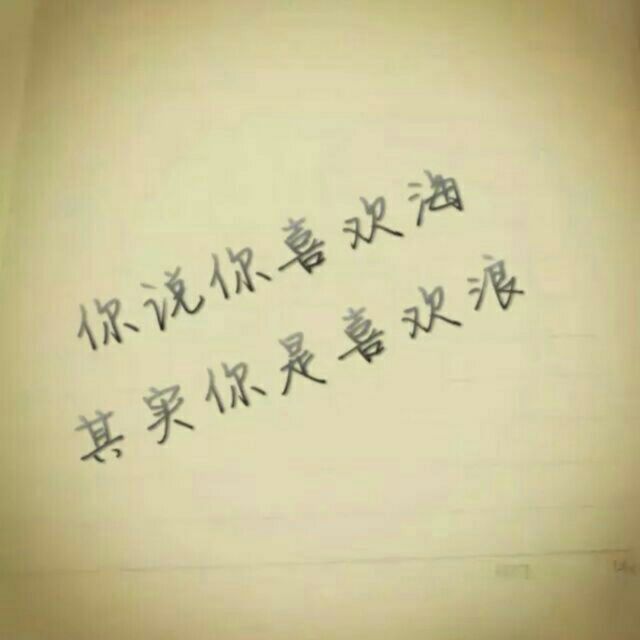 你说你喜欢海
其实你是喜欢浪